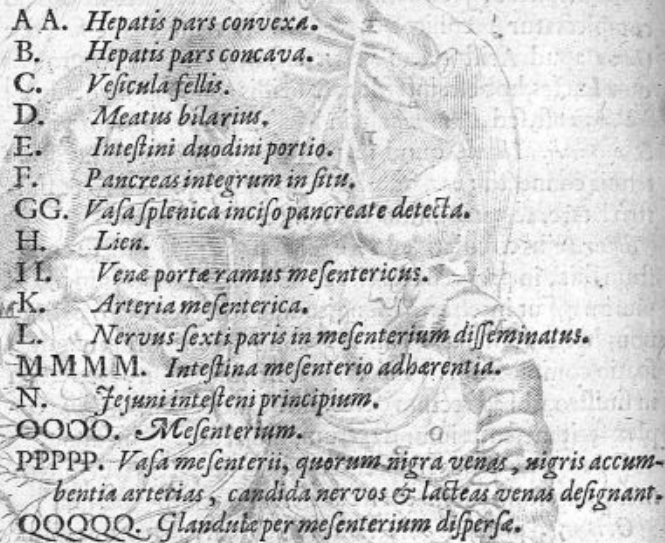 A A. Hepatis pars convexa.
B. Hepatis pars concava.
C. Veſicula fellis.
D. Meatus bilarius.
E. Inteſtini duodini portio.
F. Pancreas integrum in ſitu.
GG. Vaſa ſplenica inciſo pancreate detecta.
H. Lien.
I I. Venæ portæ ramus meſentericus.
K. Arteria meſenterica.
L. Nervus ſexti paris in meſenterium diſſeminatus.
M M M M. Inteſtina meſenterio adhærentia.
N. Jejuni inteſteni principium.
OOOO. Meſenterium.
PPPPP. Vaſa meſenterii, quorum nigra venas, nigris accum-
bentia arterias, candida nervos & lacteas venas deſignant.
QQQQQ. Glandulæ per meſenterium diſperſæ.